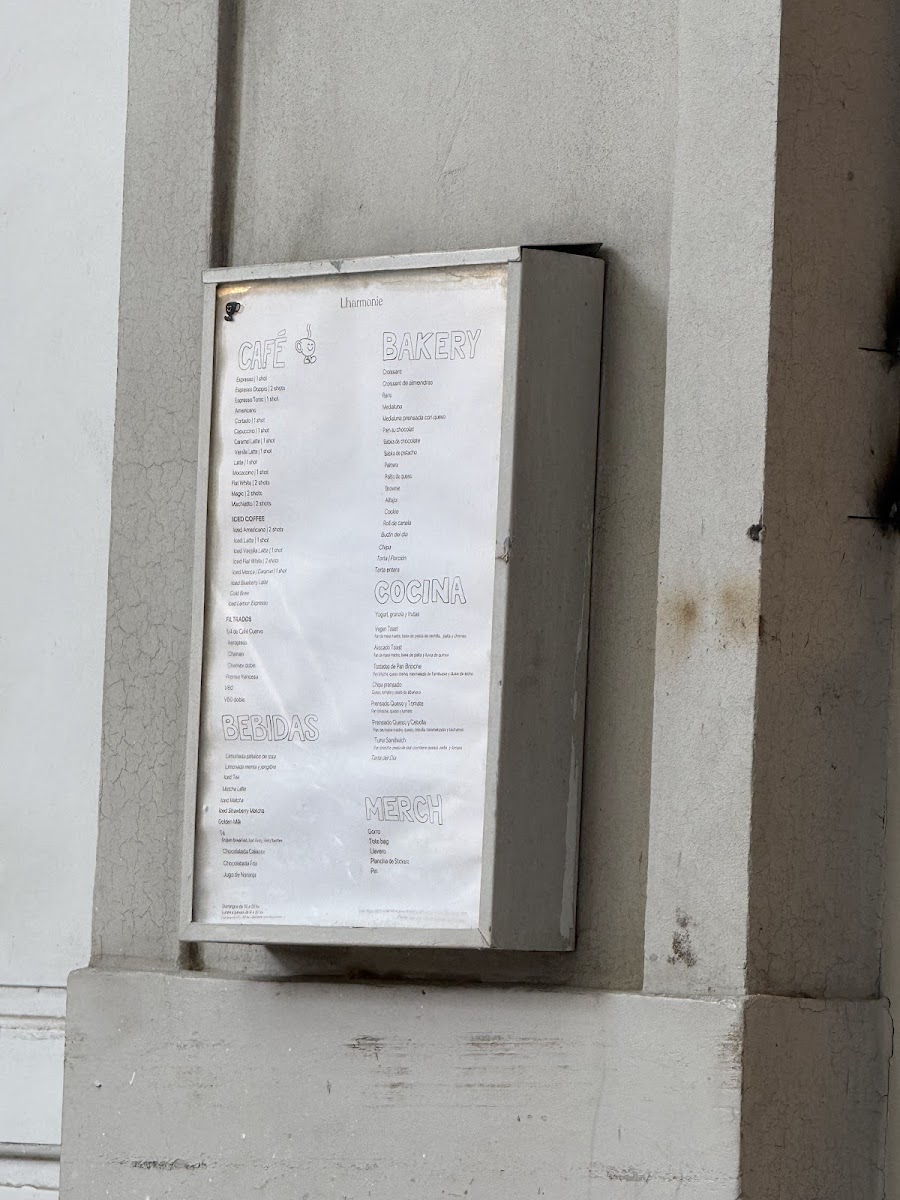 Lharmonie
CAFÉ
Espresso | 1 shot
Espresso Doppio | 2 shots
Espresso Tonic | 1 shot
Americano
Cortado | 1 shot
Capuccino | 1 shot
Caramel Latte | 1 shot
Vanilla Latte | 1 shot
Latte | 1 shot
Mocaccino | 1 shot
Flat White | 2 shots
Magic | 2 shots
Machiatto | 2 shots
ICED COFFEE
Iced Americano | 2 shots
Iced Latte | 1 shot
Iced Vanilla Latte | 1 shot
Iced Flat White | 2 shots
Iced Mocca / Caramel | 1 shot
Iced Blueberry Latte
Cold Brew
Iced Lemon Espresso
FILTRADOS
1/4 de Café Cuervo
Aeropress
Chemex
Chemex doble
Prensa francesa
V60
V60 doble
BEBIDAS
Limonada menta y jengibre
Iced Tea
Matcha Latte
Iced Matcha
Iced Strawberry Matcha
Golden Milk
Té
Chocolatada Caliente
Chocolatada Fría
Jugo de Naranja
BAKERY
Croissant
Croissant de almendras
Roll
Medialuna
Medialuna prensada con queso
Pan au chocolat
Babka de chocolate
Babka de pistacho
Palmera
Palito de queso
Brownie
Alfajor
Cookie
Roll de canela
Budín del día
Chipa
Torta | Porción
Torta entera
COCINA
Yogurt, granola y frutas
Vegan Toast
Avocado Toast
Tostadas de Pan Brioche
Chipa prensado
Prensado Queso y Tomate
Pan brioche, queso y tomate
Prensado Queso y Cebolla
Tuna Sandwich
Tarta del Día
MERCH
Gorra
Tote bag
Llavero
Plancha de Stickers
Pin